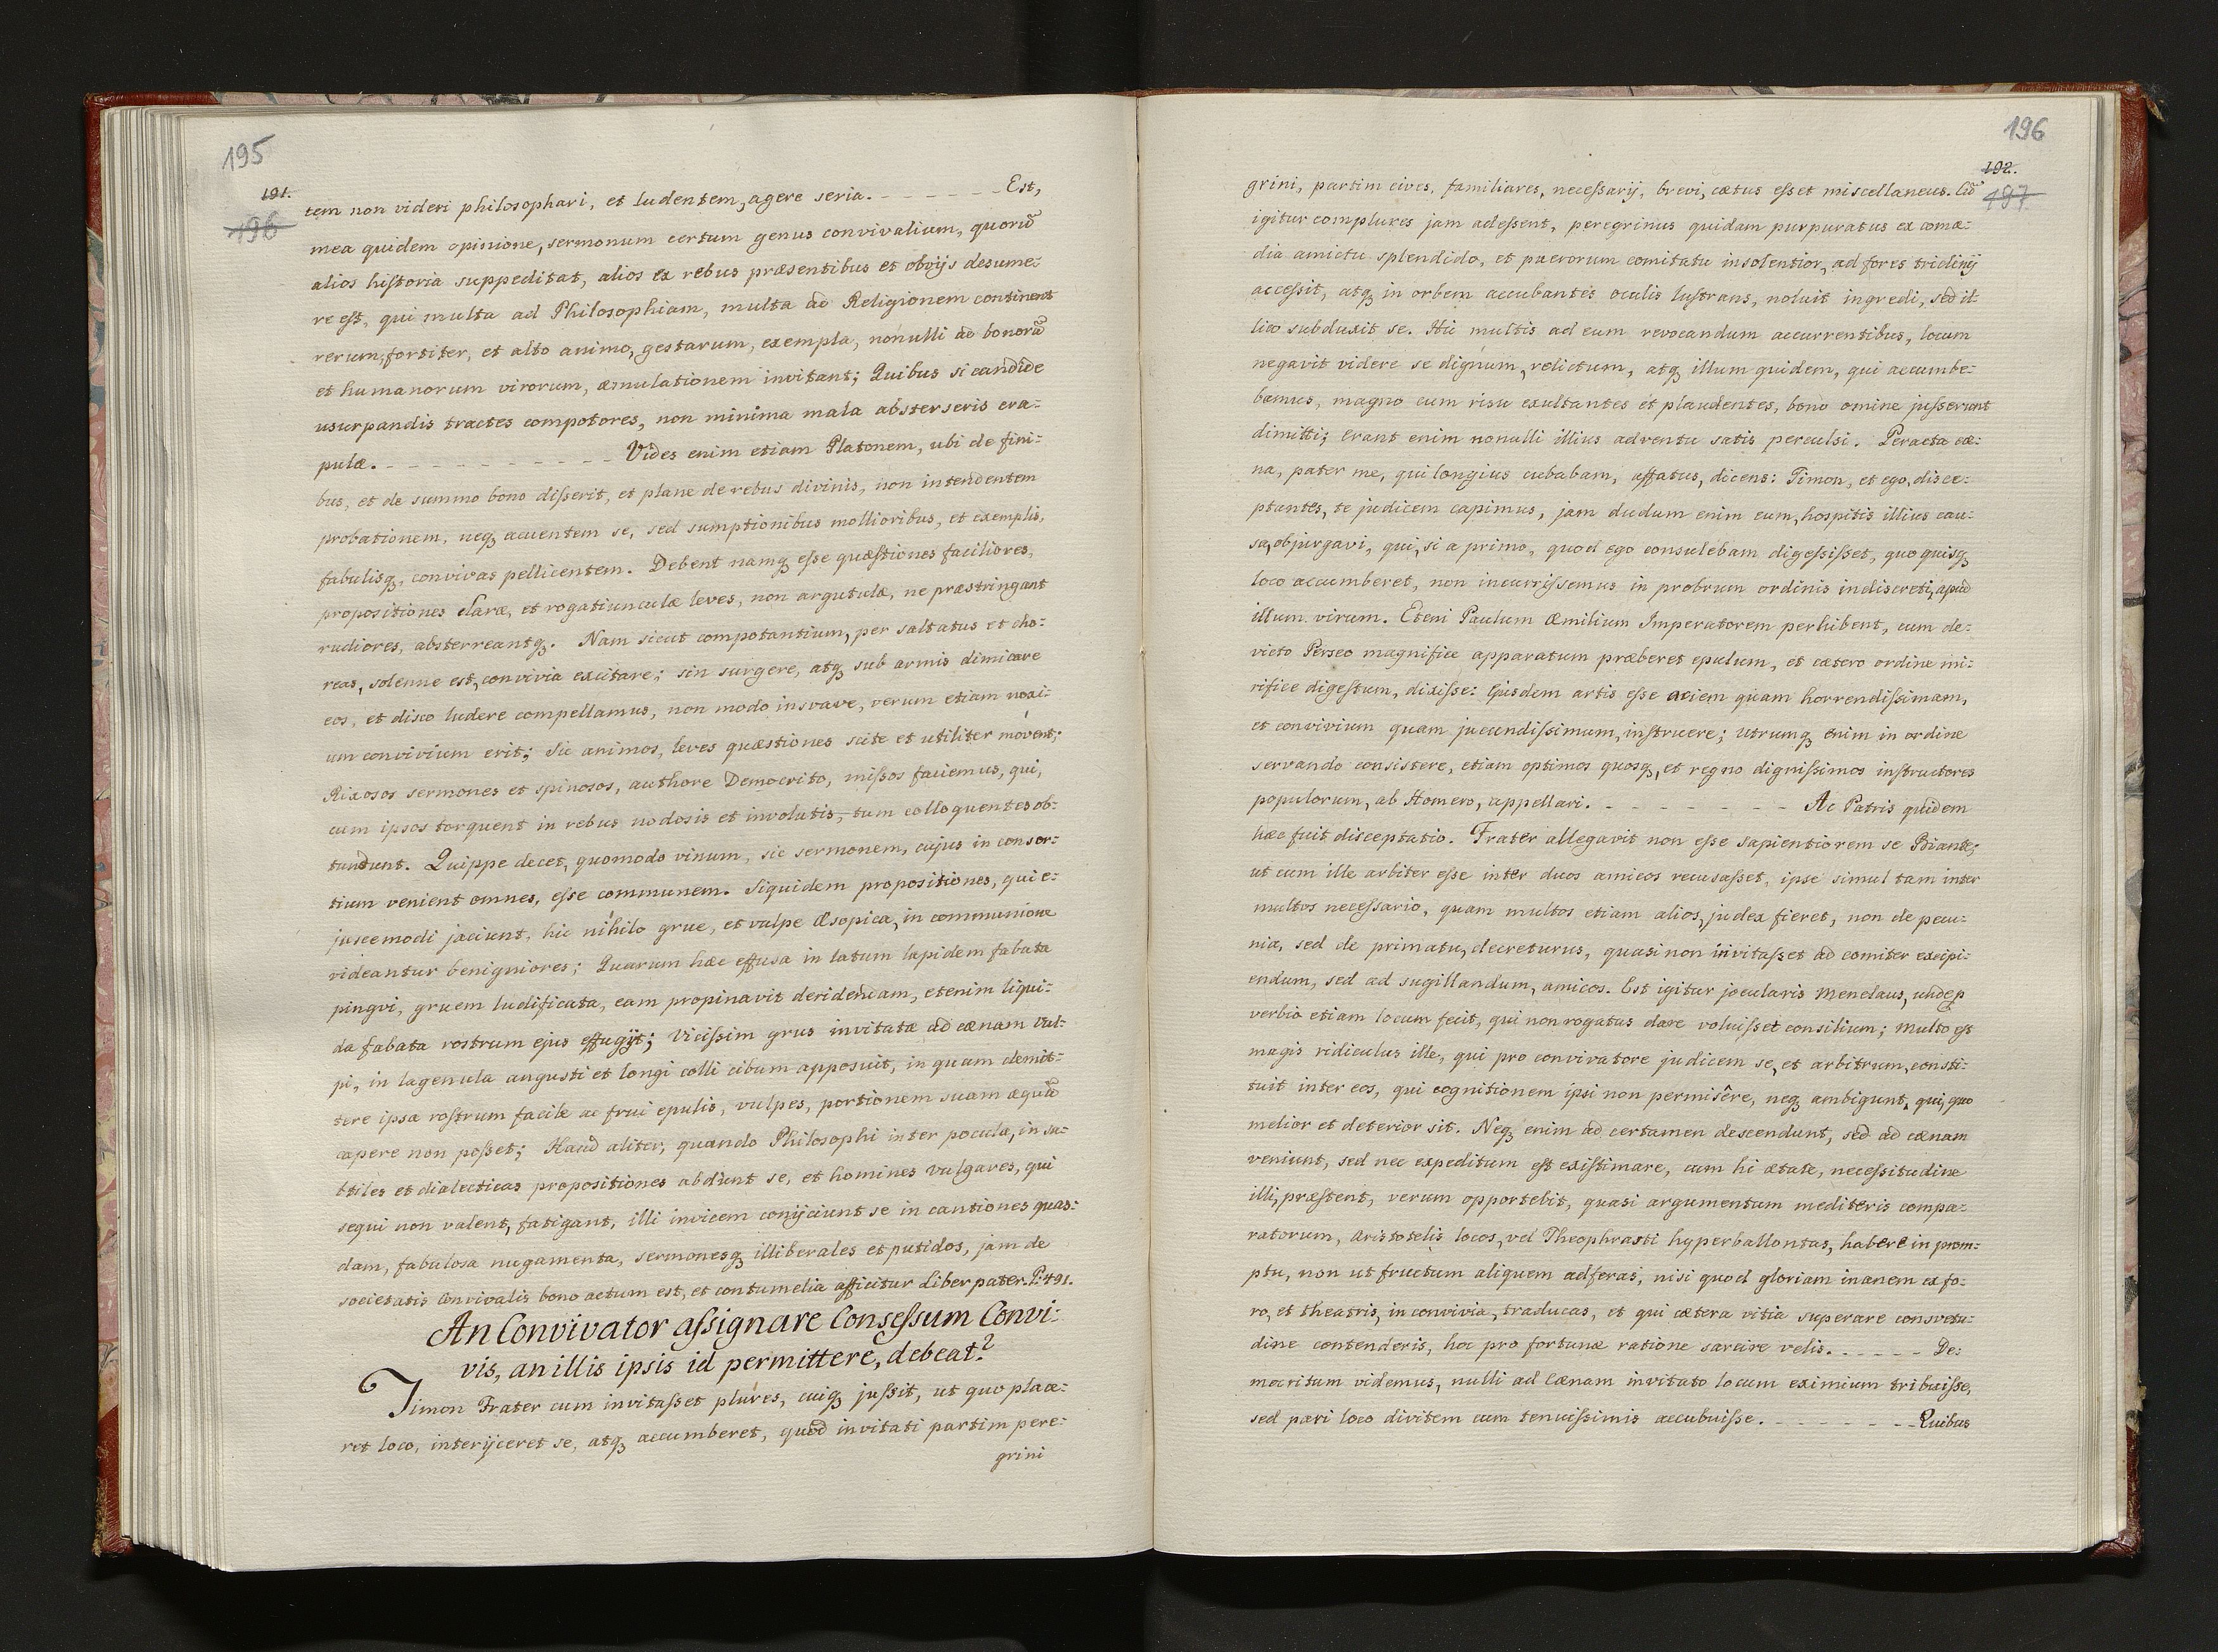 195
191.
196
tem non videri philosophari, et ludentem, agere seria. - - - - - - - Est,
mea quidem opinione, sermonum certum genus convivalium, quorũ
alios historia suppeditat, alios ex rebus præsentibus et obvijs desume:
re est, qui multa ad Philosophiam, multa ad Religionem continent
rerum, fortiter, et alto animo, gestarum, exempla, nonulli ad bonorũ
et humanorum virorum, æmulationem invitant; Quibus si candide
usurpandis tractes compotores, non minima mala absterseris cra:
pulæ. - - - - - - - - - - - - Vides enim etiam Platonem, ubi de fini:
bus, et de summo bono disserit, et plane de rebus divinis, non intendentem
probationem, neqꝫ acuentem se, sed sumptionibus mollioribus, et exemplis,
fabulisqꝫ, convivas pellicentem. Debent namqꝫ esse quæstiones faciliores,
propositiones claræ, et rogatiunculæ leves, non argutulæ, ne præstringant
rudiores, absterreantqꝫ. Nam sicut compotantium, per saltatus et cho:
reas, solenne est, convivia excitare; sin surgere, atqꝫ sub armis dimicare
eos, et disco ludere compellamus, non modo insvave, verum etiam noxi:
um convivium erit; Sic animos, leves quæstiones scite et utiliter movent;
Rixosos sermones et spinosos, authore Democrito, missos faciemus, qui,
cum ipsos torquent in rebus nodosis et involutis, tum colloquentes ob:
tundunt. Quippe decet, quomodo vinum, sic sermonem, cujus in consor:
tium venient omnes, esse communem. Siquidem propositiones, qui e:
juscemodi jaciunt, hic nihilo grue, et vulpe Æsopica, in communione
videantur benigniores; Quarum hæc effusa in latum lapidem fabata
pingvi, gruem ludificata, eam propinavit deridendam, etenim liqui:
da fabata rostrum ejus effugijt; Vicissim grus invitata ad cænam vul:
pi, in lagenula angusti et longi colli cibum apposuit, in quam demit:
tere ipsa rostrum facile ac frui epulis, vulpes, portionem suam æquã
capere non posset; Haud aliter, quando Philosophi inter pocula, in su:
btiles et dialecticas propositiones abdunt se, et homines vulgares, qui
sequi non valent, fatigant, illi invicem conijciunt se in cantiones quas:
dam, fabulosa nugamenta, sermonesqꝫ illiberales et putidos, jam de
societatis Convivalis bono actum est, et contumelia afficitur Liber pater. P: 491.
An Convivator assignare Consessum Convi:
vis, an illis ipsis id permittere, debeat?
Timon Frater cum invitasset plures, cuiqꝫ jussit, ut quo place:
ret loco, interijceret se, atqꝫ accumberet, quod invitati partim pere:
grini
196
192.
197
grini, partim cives, familiares, necessarij, brevi, cœtus esset miscellaneus. Cũ
igitur complures jam adessent, peregrinus quidam purpuratus ex comæ:
dia amictu splendido, et puerorum comitatu insolentior, ad fores triclinij
accessit, atqꝫ in orbem accubantes oculis lustrans, noluit ingredi, sed il:
lico subduxit se. Hic multis ad eum revocandum accurrentibus, locum
negavit videre se dignum, relictum, atqꝫ illum quidem, qui accumbe:
bamus, magno cum risu exultantes et plaudentes, bono omine jusserunt
dimitti; Erant enim nonulli illius adventu satis perculsi. Peracta cæ:
na, pater me, qui longius cubabam, affatus, dicens: Timon, et ego, disce:
ptantes, te judicem capimus, jam dudum enim eum, hospitis illius cau:
sa, objurgavi, qui, si a primo, quod ego consulebam digessisset, quo quisqꝫ
loco accumberet, non incurrissemus in probrum ordinis indiscreti, apud
illum virum. Eteni Paulum Æmilium Imperatorem perhibent, cum de:
victo Perseo magnifice apparatum præberet epulum, et cætero ordine mi:
rifice digestum, dixisse: Ejusdem artis esse aciem quam horrendissimam,
et convivium quam jucundissimum, instruere; Utrumqꝫ enim in ordine
servando consistere, etiam optimos quosqꝫ, et regno dignissimos instructores
populorum, ab Homero, appellari. - - - - - - - - - Ac Patris quidem
hæc fuit disceptatio. Frater allegavit non esse sapientiorem se Biante;
ut cum ille arbiter esse inter duos amicos recusasset, ipse simul tam inter
multos necessario, quam multos etiam alios, judex fieret, non de pecu:
nia, sed de primatu, decreturus, quasi non invitasset ad comiter excipi:
endum, sed ad sugillandum, amicos. Est igitur jocularis Menelaus, unde ꝓ
verbio etiam locum fecit, qui non rogatus dare voluisset consilium; Multo est
magis ridiculus ille, qui pro convivatore judicem se, et arbitrum, consti:
tuit inter eos, qui cognitionem ipsi non permisêre, neqꝫ ambigunt, qui, quo
melior et deterior sit. Neqꝫ enim ad certamen descendunt, sed ad cænam
veniunt, sed nec expeditum est existimare, cum hi ætate, necessitudine
illi, præstent, verum opportebit, quasi argumentum mediteris compa:
ratorum, Aristotelis locos, vel Theophrasti hyperballontas, habere in prom:
ptu, non ut fructum aliquem adferas, nisi quod gloriam inanem ex fo:
ro, et theatris, in convivia, traducas, et qui cætera vitia superare consvetu:
dine contenderis, hoc pro fortunæ ratione sarcire velis. - - - - - De:
mocritum videmus, nulli ad Cænam invitato locum eximium tribuisse,
sed pari loco divitem cum tenuissimis accubuisse. - - - - - - - - Quibus